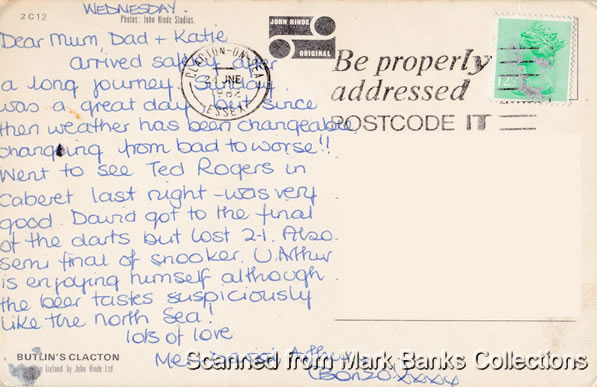 WEDNESDAY.
2C12
Photos: John Hinde Studios.
Dear Mum, Dad + Katie
arrived safely after
a long journey. Sunday
was a great day but since
then weather has been changeable
changing from bad to worse!!
Went to see Ted Rogers in
Caberet last night - was very
good. David got to the final
of the darts but lost 2-1. Also
semi final of snooker. U.Arthur
is enjoying himself although
the beer tastes suspiciously
like the north Sea!
lots of love
JOHN HINDE
ORIGINAL
CLACTON-ON-SEA
JNE
1982
ESSEX
Be properly
addressed
POSTCODE IT
BUTLIN'S CLACTON
Ireland by John Hinde Ltd.
Scanned from Mark Banks Collections
xxxx